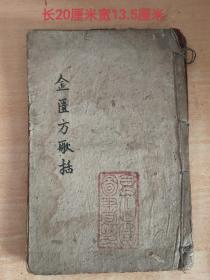 长20厘米宽13.5厘米
金匱方歌括